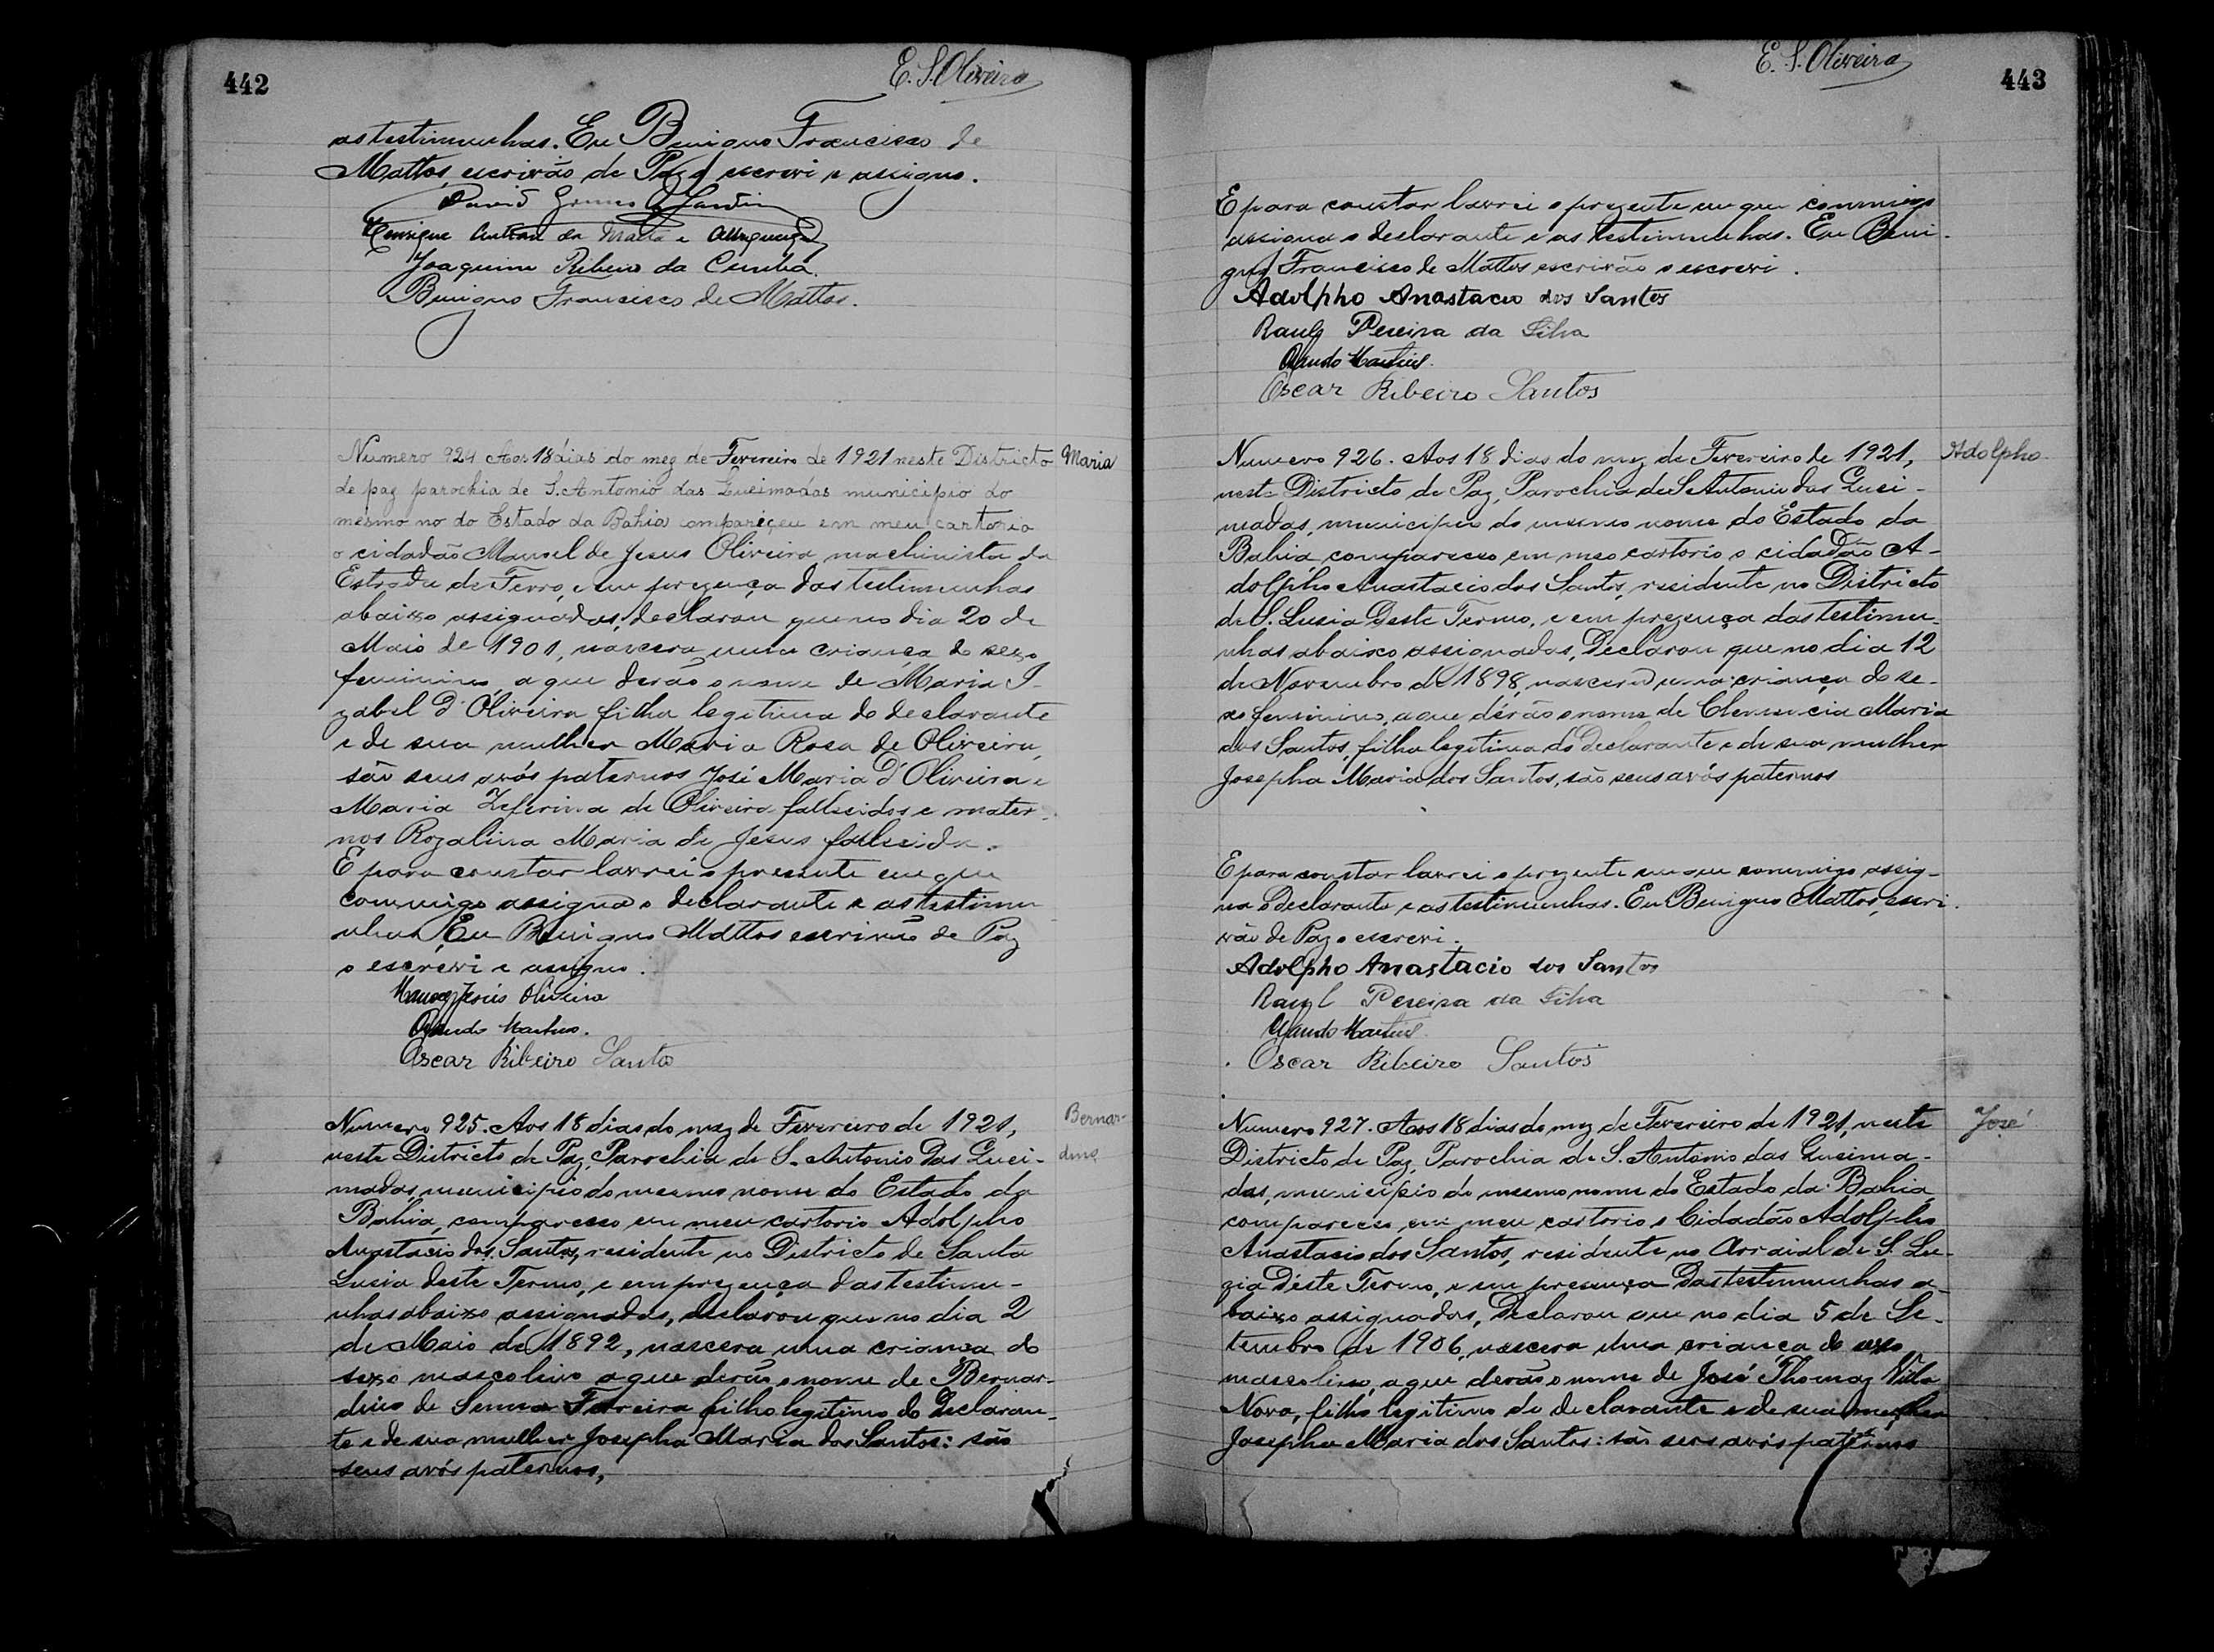 442
E. S. Oliveira
as testimunhas. Eu Benigno Francisco de
Mattos, escrivão de Paz o escrevi e assigno.
David Gomes Jardim
Henrique da Matta e
Joaquim Ribeiro da Cunha.
Benigno Francisco de Mattos.
Numero 924 Aos 18 dias do mez de Fevereiro de 1921 neste Districto
Maria
de paz parochia de S. Antonio das Queimadas municipio do
mesmo no do Estado da Bahia compareçeu em meu cartorio
o cidadão Manuel de Jesus Oliveira, machinista da
Estrada de Ferro, e em prezença das testimunhas
abaixo assignadas, declarou que no dia 20 de
Maio de 1901, nascera uma criança do sexo
feminino, a que derão o nome de Maria I-
zabel d'Oliveira filha legitima do declarante
e de sua mulher Maria Rosa de Oliveira,
são seus avós paternos José Maria d'Oliveira e
Maria Zeferina de Oliveira fallecidos e mater-
nos Rozalina Maria de Jesus fallecida.
E para constar lavrei o presente em que
commigo assigna o declarante e as testimu
nhas. Eu Benigno Mattos escrivão de Paz
o escrevi e assigno.
Manoel Jesus Oliveira
Martins.
Oscar Ribeiro Santos
Numero 925. Aos 18 dias do mez de Fevereiro de 1921,
Bernar-
dino
neste Districto de Paz, Parochia de S. Antonio das Quei-
madas, municipio do mesmo nome do Estado da
Bahia, compareceo em meu cartorio Adolpho
Anastacio dos Santos, residente no Districto de Santa
Lusia deste Termo, e em prezença das testimu-
nhas abaixo assignadas, declarou que no dia 2
de Maio de 1892, nascera uma criança do
sexo mascolino a que derão o nome de Bernar-
dino de Senna Ferreira filho legitimo do Declaran-
te e de sua mulher Josepha Maria dos Santos: são
seus avós paternos,
E. S. Oliveira
443
E para constar lavrei o prezente em que commigo
assigna o declarante e as testimunhas. Eu Beni-
gno Francisco de Mattos escrivão o escrevi.
Adolpho Anastacio dos Santos
Raul Pereira da Silva
Martins.
Oscar Ribeiro Santos
Numero 926. Aos 18 dias do mez de Fevereiro de 1921,
Adolpho
neste Districto de Paz, Parochia de S. Antonio das Quei-
madas, municipio do mesmo nome do Estado da
Bahia, compareceo em meo cartorio o cidadão A-
dolpho Anastacio dos Santos, residente no Districto
de S. Lusia deste Termo, e em prezença das testimu-
nhas abaixo assignadas, Declarou que no dia 12
de Novembro de 1898, nascera uma criança do se-
xo feminino, a que dérão o nome de Clemencia Maria
dos Santos, filha legitima do Declarante e de sua mulher
Josepha Maria dos Santos, são seus avós paternos
E para constar lavrei o prezente em que commigo assig-
na o Declarante e as testimunhas. Eu Benigno Mattos, escri-
vão de Paz o escrevi.
Adolpho Anastacio dos Santos
Raul Pereira da Silva
Martins
Oscar Ribeiro Santos
Numero 927. Aos 18 dias do mez de Fevereiro de 1921, neste
José
Districto de Paz, Parochia de S. Antonio das Queima-
das, municipio do mesmo nome do Estado da Bahia,
compareceo em meu cartorio o Cidadão Adolpho
Anastacio dos Santos, residente no Arraial de S. Lu-
zia Déste Termo, e em presença das testimunhas a-
baixo assignadas, Declarou que no dia 5 de Se-
tembro de 1906, nascera uma criança do sexo
mascolino, a que derão o nome de José Thomaz Villa
Nova, filho legitimo do declarante e de sua mulher
Josepha Maria dos Santos: são seus avós paternos